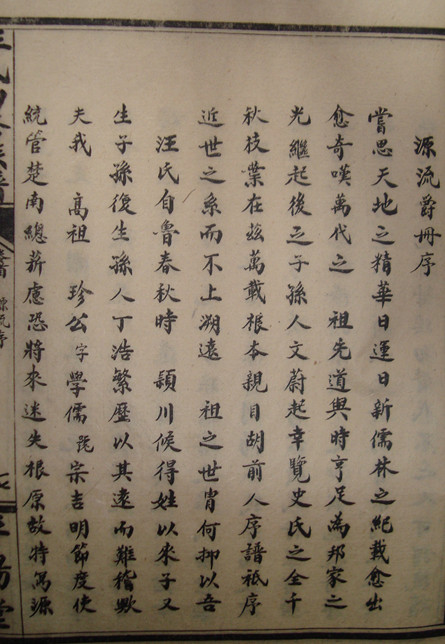 源流爵冊序
嘗思天地之精華日運日新儒林之紀載愈出
愈奇嘆萬代之 祖先道與時亨足為邦家之
光繼起後之子孫人文蔚起幸覽史氏之全千
秋枝業在玆萬載根本親目胡前人序譜祗序
近世之系而不上溯遠 祖之世胄何抑以吾
汪氏自魯春秋時 潁川候得姓以來子又
生子孫復生孫人丁浩繁歷以其遠而難稽歟
夫我 高祖 珍公字學儒 宗吉明節度使
統管楚南總薪慮恐將來迷失根原故特寫源